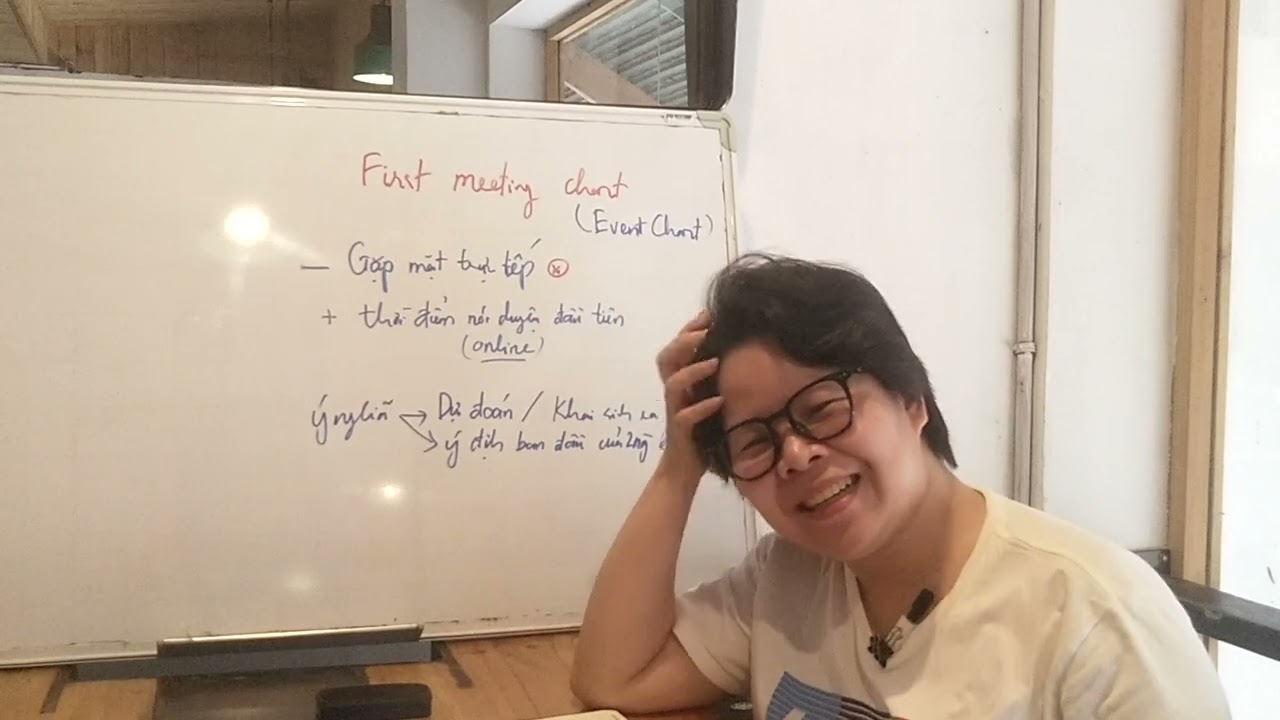 First meeting chart
(Event Chart)
— Gặp mặt trực tiếp
+ thời điểm nói chuyện đầu tiên
(online)
Ý nghĩa → Dự đoán / Khai sinh ra
→ ý định ban đầu của